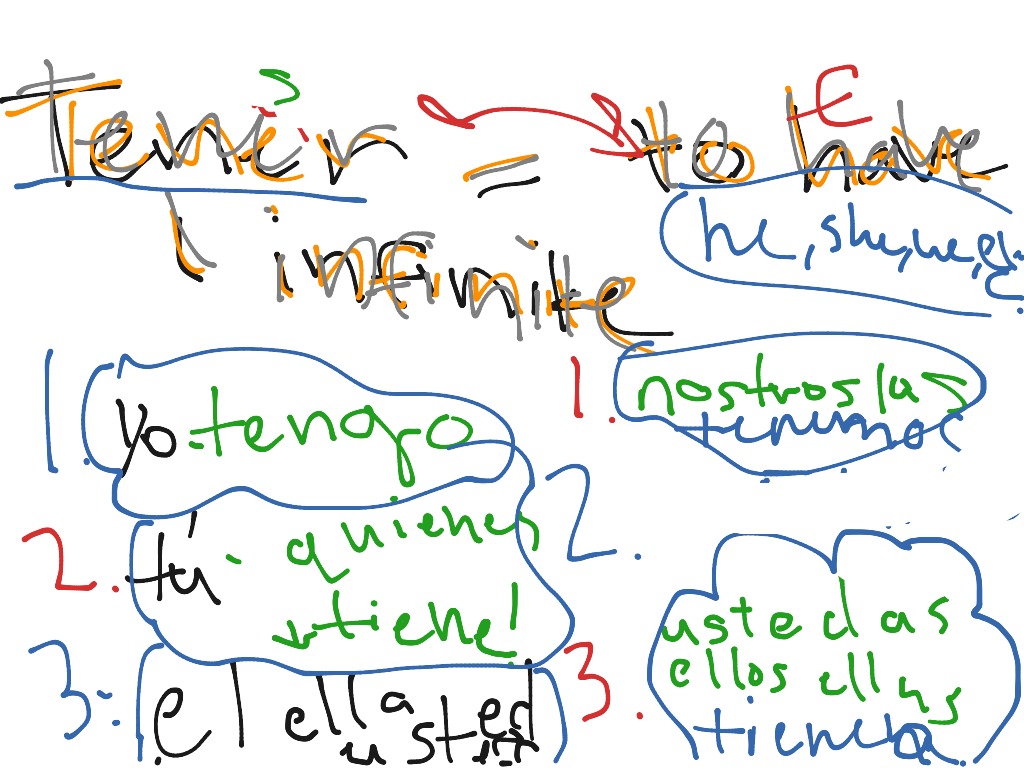 Tener = to have
infinite
he, she, we,
1.
yo tengo
1.
nostros las
2.
tú - quienes
tiene!
2.
3:
el ella usted
3.
ustedas
ellos ellas